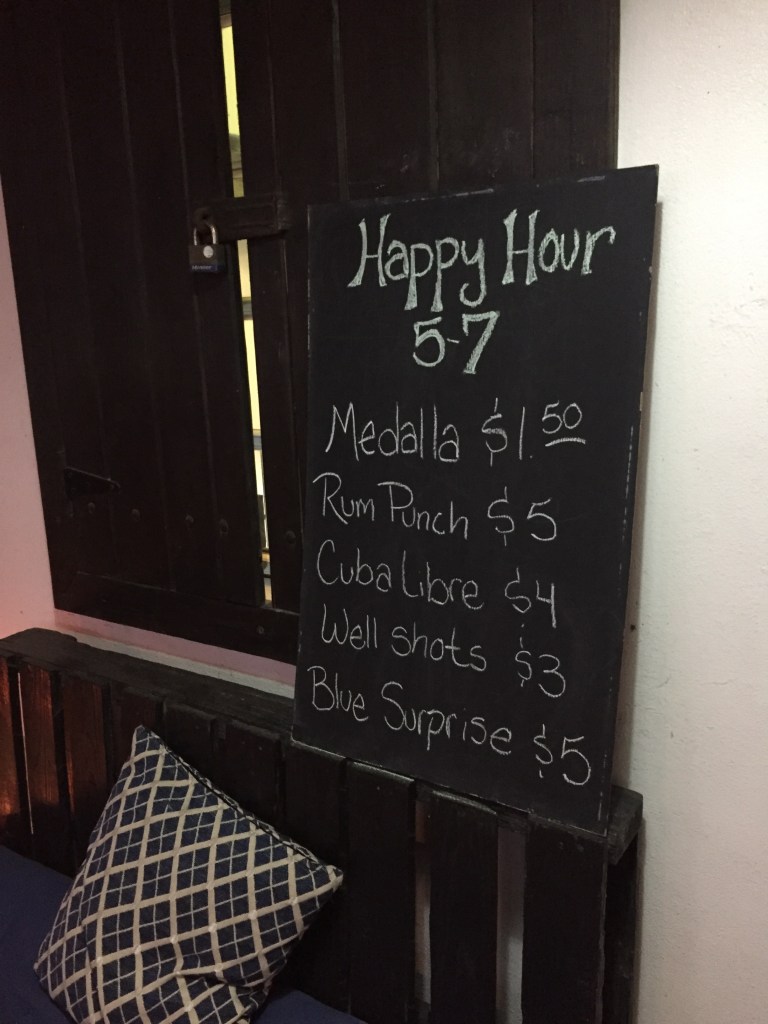 Happy Hour
5-7
Medalla $1.50
Rum Punch $5
Cuba Libre $4
Well shots $3
Blue Surprise $5